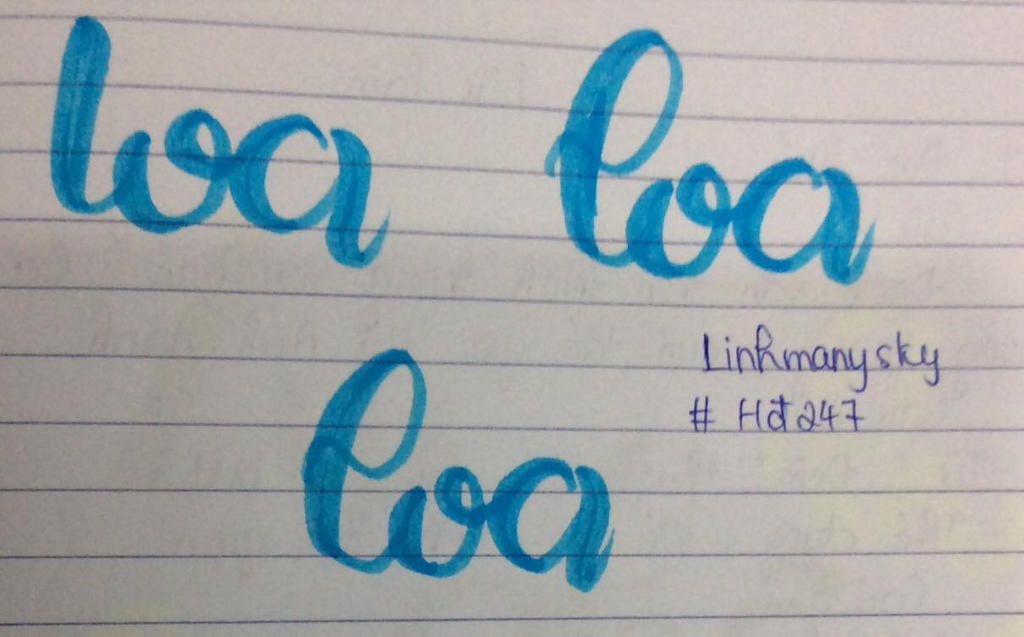 loa loa
loa
Linhmanysky
# Hot247